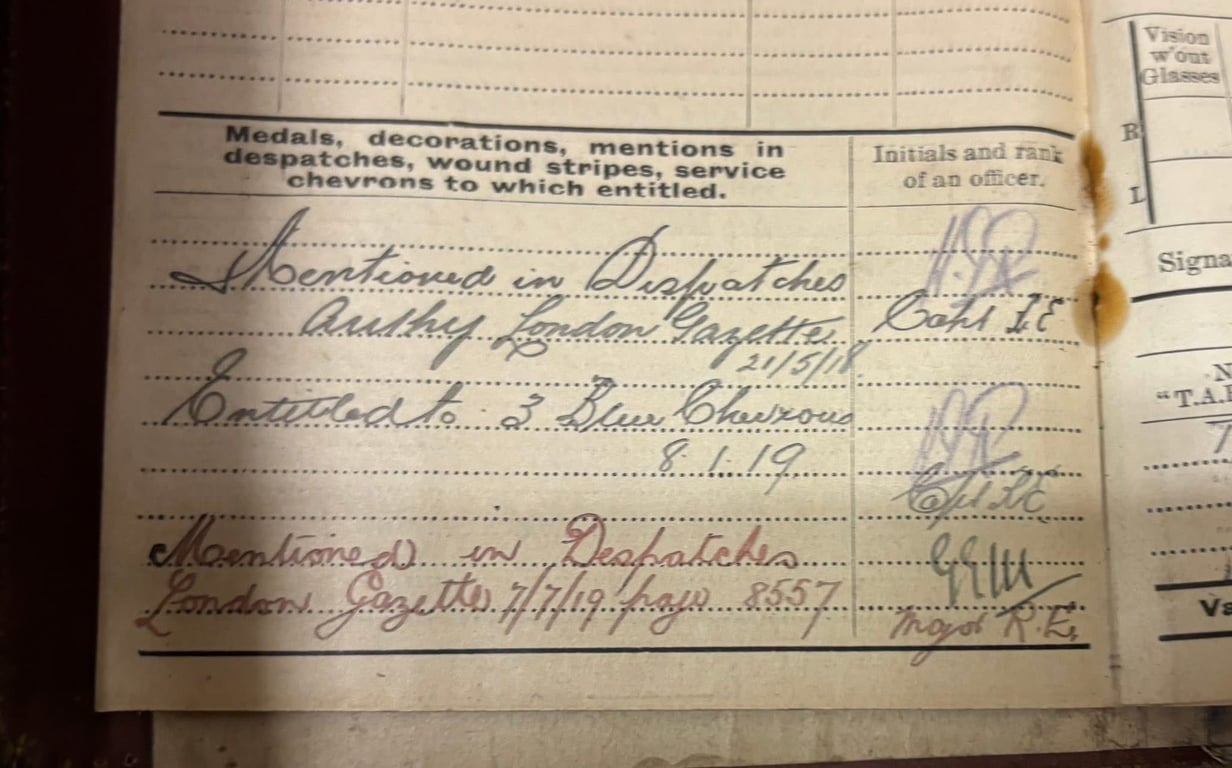 Medals, decorations, mentions in
despatches, wound stripes, service
chevrons to which entitled.
Initials and rank
of an officer.
Mentioned in Despatches
Authy London Gazette
21/5/18
Capt
Entitled to 3 Blue Chevrons
8.1.19
Capt RE
Mentioned in Despatches
London Gazette 7/7/19 page 8557
Major R.E.
Vision
w'out
Glasses
R
L
Signa
N
"T.A.B
Va